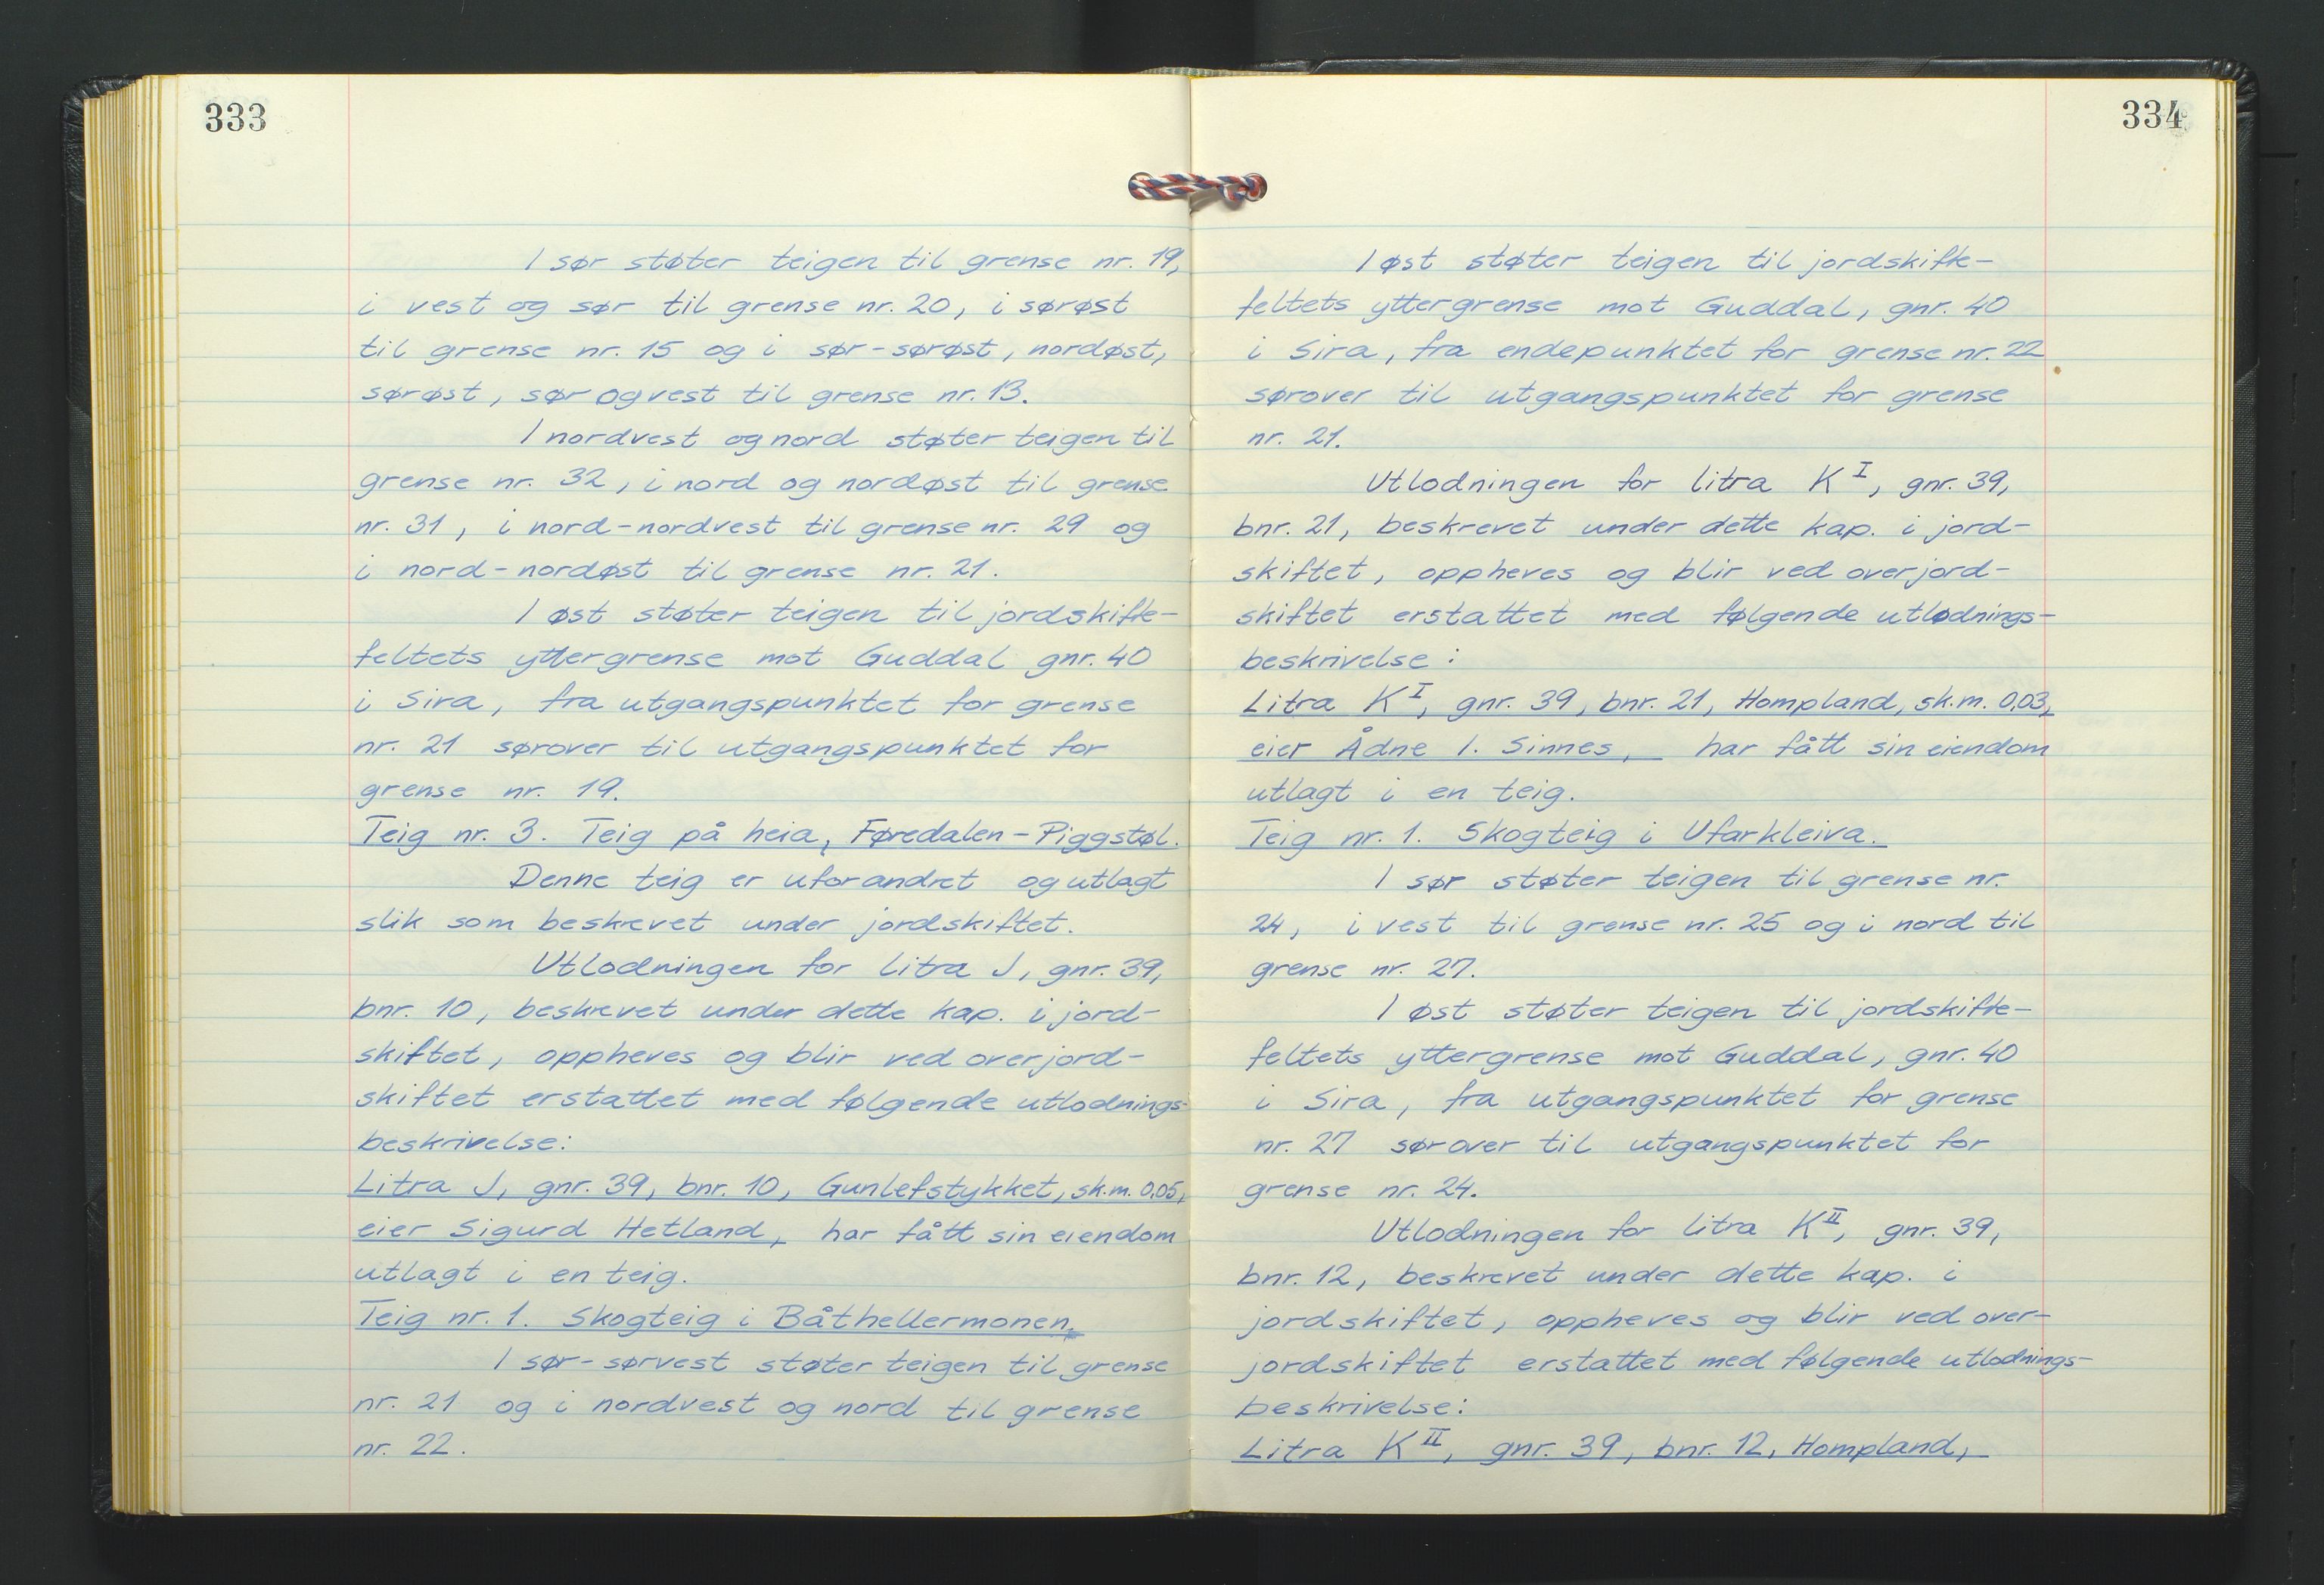 333
I sør støter teigen til grense nr. 19,
i vest og sør til grense nr. 20, i sørøst
til grense nr. 15 og i sør-sørøst, nordøst,
sørøst, sør og vest til grense nr. 13.
I nordvest og nord støter teigen til
grense nr. 32, i nord og nordøst til grense
nr. 31, i nord-nordvest til grense nr. 29 og
i nord-nordøst til grense nr. 21.
I øst støter teigen til jordskifte-
feltets yttergrense mot Guddal gnr. 40
i Sira, fra utgangspunktet for grense
nr. 21 sørover til utgangspunktet for
grense nr. 19.
Teig nr. 3. Teig på heia, Føredalen-Piggstøl.
Denne teig er uforandret og utlagt
slik som beskrevet under jordskiftet.
Utlodningen for litra J, gnr. 39,
bnr. 10, beskrevet under dette kap. i jord-
skiftet, oppheves og blir ved overjord-
skiftet erstattet med følgende utlodnings-
beskrivelse:
Litra J, gnr. 39, bnr. 10, Gunlefstykket, sk.m. 0,05,
eier Sigurd Hetland, har fått sin eiendom
utlagt i en teig.
Teig nr. 1. Skogteig i Båthellermonen.
I sør-sørvest støter teigen til grense
nr. 21 og i nordvest og nord til grense
nr. 22.
334
I øst støter teigen til jordskifte-
feltets yttergrense mot Guddal, gnr. 40
i Sira, fra endepunktet for grense nr. 22
sørover til utgangspunktet for grense
nr. 21.
Utlodningen for litra K I, gnr. 39,
bnr. 21, beskrevet under dette kap. i jord-
skiftet, oppheves og blir ved overjord-
skiftet erstattet med følgende utlødnings-
beskrivelse:
Litra K I, gnr. 39, bnr. 21, Hompland, sk.m. 0,03,
eier Ådne I. Sinnes, har fått sin eiendom
utlagt i en teig.
Teig nr. 1. Skogteig i Ufarkleiva.
I sør støter teigen til grense nr.
24, i vest til grense nr. 25 og i nord til
grense nr. 27.
I øst støter teigen til jordskifte-
feltets yttergrense mot Guddal, gnr. 40
i Sira, fra utgangspunktet for grense
nr. 27 sørover til utgangspunktet for
grense nr. 24.
Utlodningen for litra K II, gnr. 39,
bnr. 12, beskrevet under dette kap. i
jordskiftet, oppheves og blir ved over-
jordskiftet erstattet med følgende utlodnings-
beskrivelse:
Litra K II, gnr. 39, bnr. 12, Hompland,